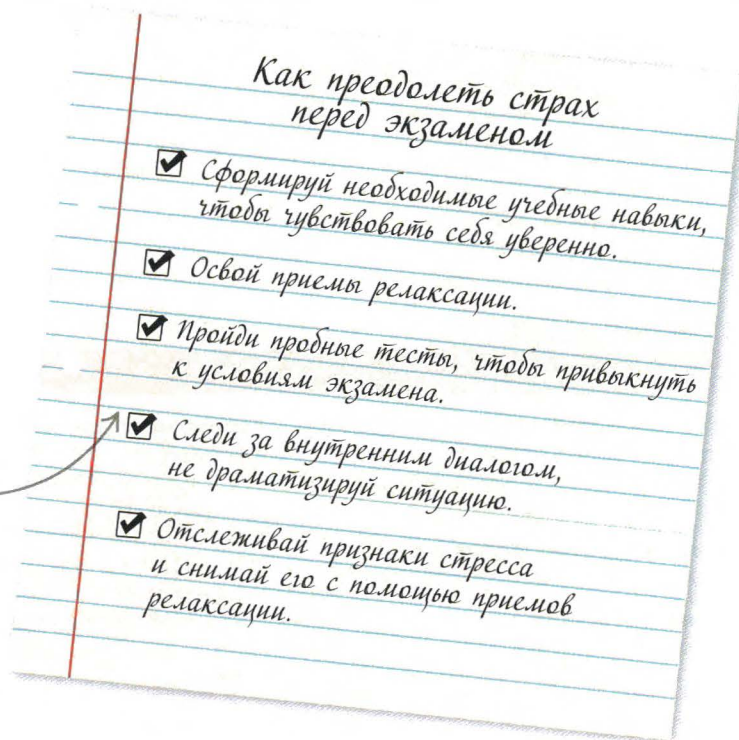 Как преодолеть страх
перед экзаменом
Сформируй необходимые учебные навыки,
чтобы чувствовать себя уверенно.
Освой приемы релаксации.
Пройди пробные тесты, чтобы привыкнуть
к условиям экзамена.
Следи за внутренним диалогом,
не драматизируй ситуацию.
Отслеживай признаки стресса
и снимай его с помощью приемов
релаксации.